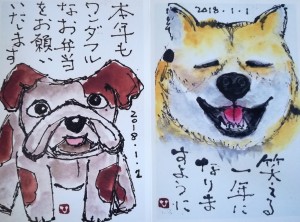 本年も
ワンダフル
なお弁当
をお願い
いたします
2018.1.2
2018.1.1
笑える
一年に
なりま
すように